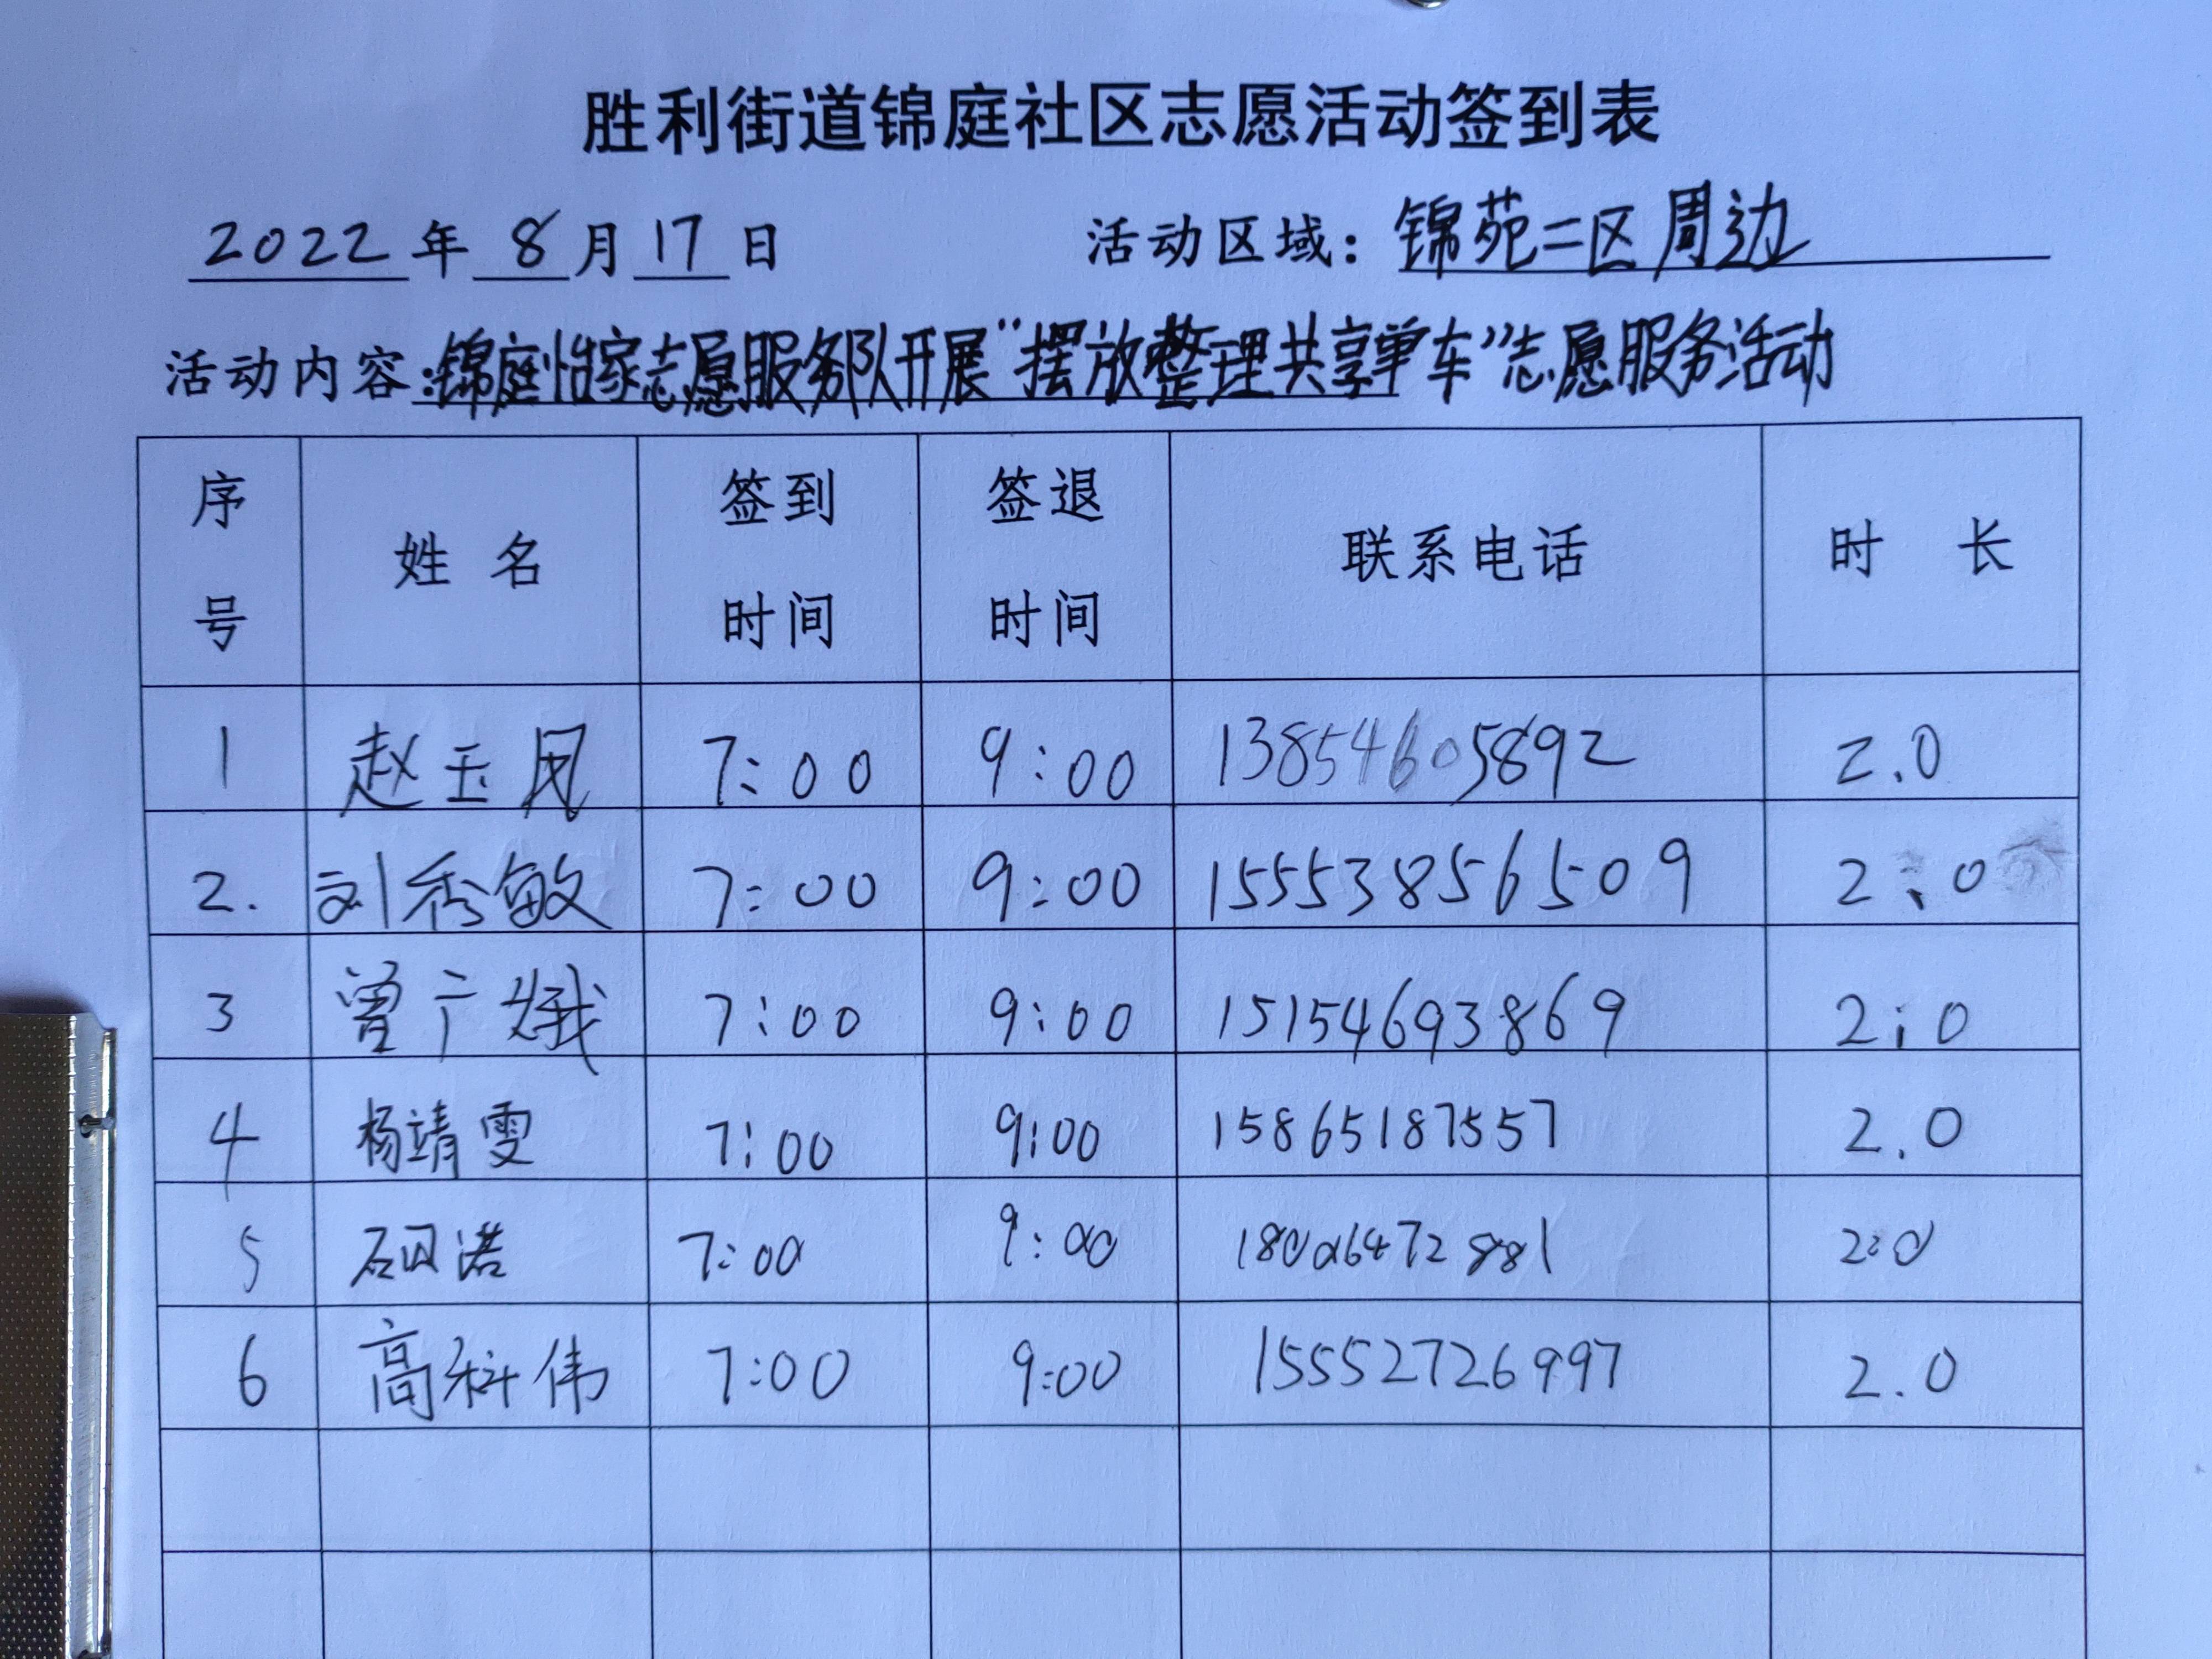 胜利街道锦庭社区志愿活动签到表
2022年 8月17日 活动区域：锦苑二区周边
活动内容：锦庭怡家志愿服务队开展“摆放整理共享单车”志愿服务活动
序号 姓名 签到时间 签退时间 联系电话 时长
1 赵玉凤 7:00 9:00 13854605892 2.0
2. 刘秀敏 7:00 9:00 15553856509 2:0
3 曾广娥 7:00 9:00 15154693869 2:0
4 杨靖雯 7:00 9:00 15865187557 2.0
5 7:00 9:00 18006472881 2:0
6 高科伟 7:00 9:00 15552726997 2.0